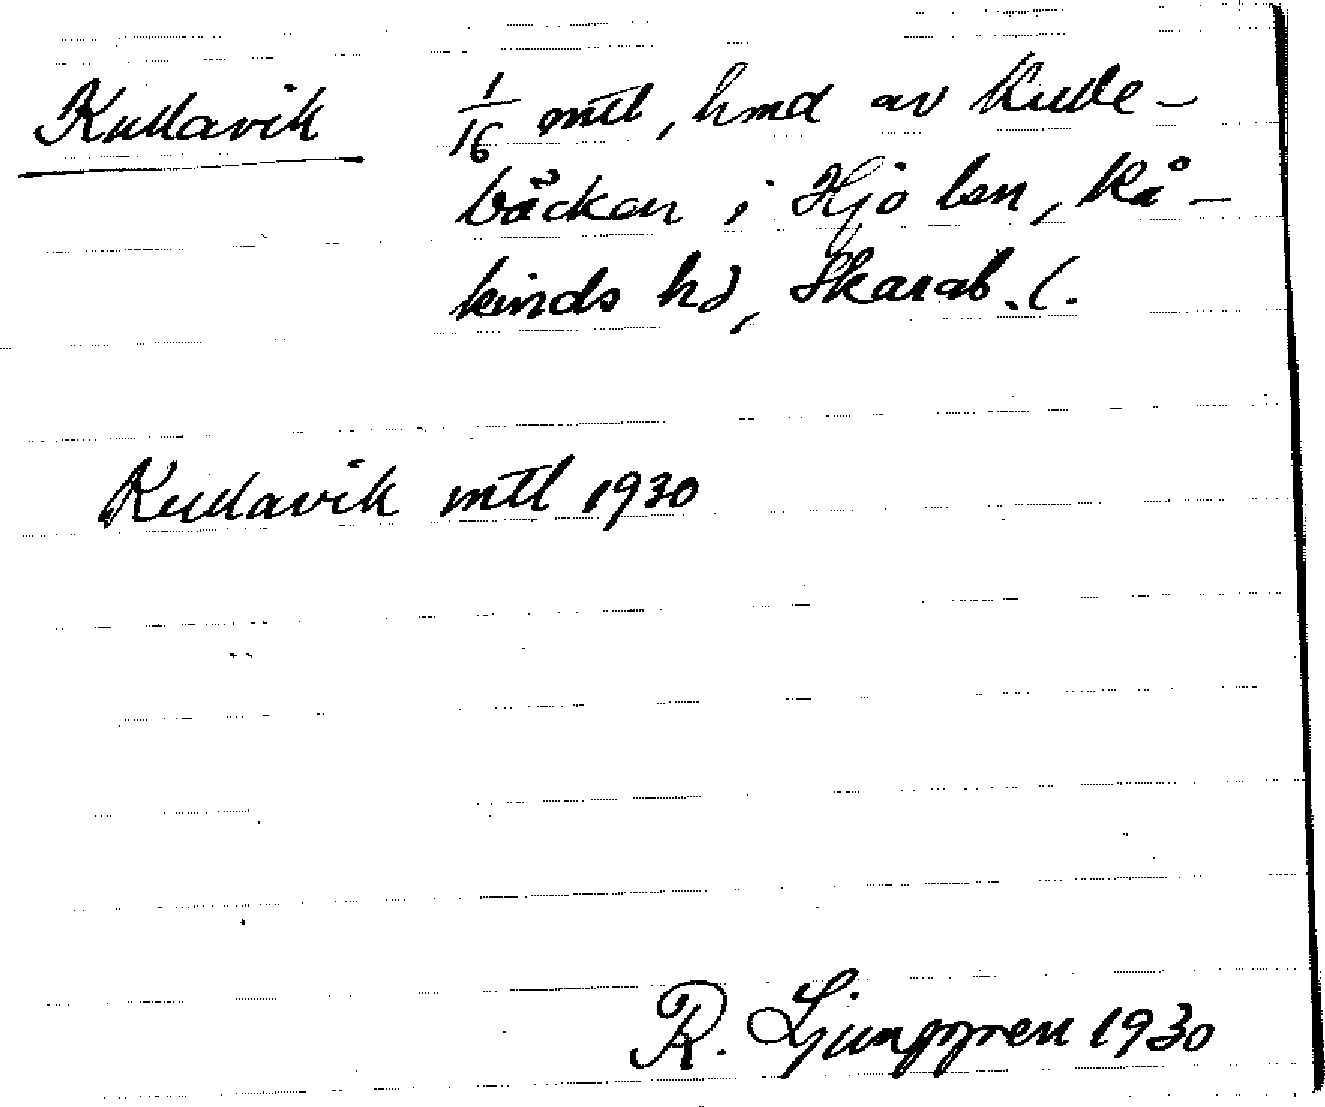 Kullavik 1/16 mtl, hmd av Kulle-
bäcken i Hjo lsn, Kå-
kinds hd, Skarab. l.
Kullavik mtl 1930
R. Ljunggren 1930